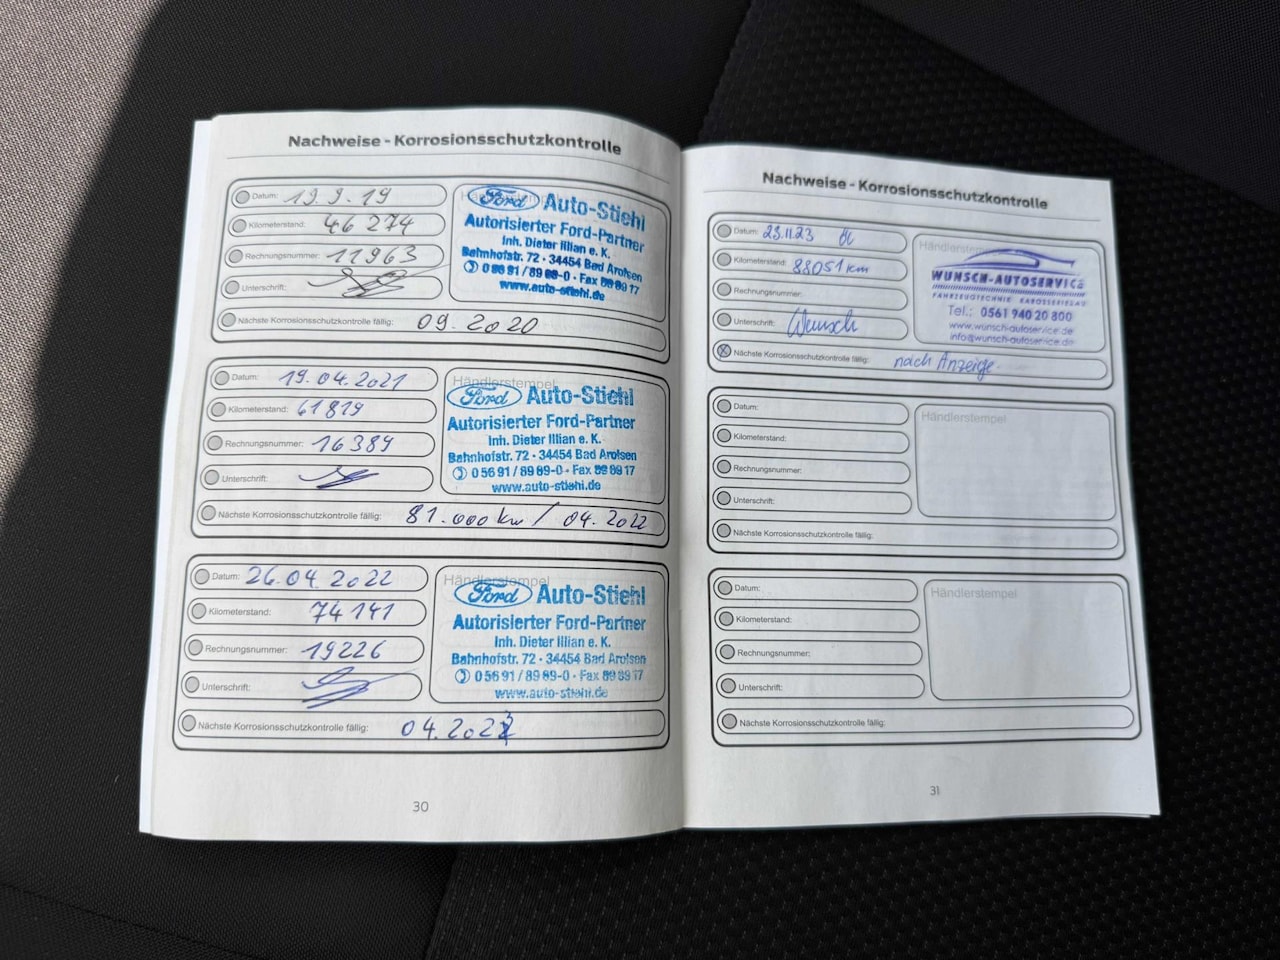 Nachweise - Korrosionsschutzkontrolle
Datum: 19.9.19
Kilometerstand: 46 274
Rechnungsnummer: 11963
Unterschrift:
Nächste Korrosionsschutzkontrolle fällig: 09.2020
Ford Auto-Stiehl
Autorisierter Ford-Partner
Inh. Dieter Illian e. K.
Bahnhofstr. 72 · 34454 Bad Arolsen
0 56 91 / 89 89-0 · Fax 89 89 17
www.auto-stiehl.de
Datum: 19.04.2021
Kilometerstand: 61 819
Rechnungsnummer: 16384
Unterschrift:
Nächste Korrosionsschutzkontrolle fällig: 81.000 km / 04.2022
Händlerstempel
Ford Auto-Stiehl
Autorisierter Ford-Partner
Inh. Dieter Illian e. K.
Bahnhofstr. 72 · 34454 Bad Arolsen
0 56 91 / 89 89-0 · Fax 89 89 17
www.auto-stiehl.de
Datum: 26.04.2022
Kilometerstand: 74 141
Rechnungsnummer: 19226
Unterschrift:
Nächste Korrosionsschutzkontrolle fällig: 04.2023
Händlerstempel
Ford Auto-Stiehl
Autorisierter Ford-Partner
Inh. Dieter Illian e. K.
Bahnhofstr. 72 · 34454 Bad Arolsen
0 56 91 / 89 89-0 · Fax 89 89 17
www.auto-stiehl.de
30
Nachweise - Korrosionsschutzkontrolle
Datum: 23.11.23
Kilometerstand: 88051 km
Rechnungsnummer:
Unterschrift: Wunsch
Nächste Korrosionsschutzkontrolle fällig: nach Anzeige
Händlerstempel
WUNSCH-AUTOSERVICE
FAHRZEUGTECHNIK
Tel.: 0561 940 20 800
www.wunsch-autoservice.de
info@wunsch-autoservice.de
Datum:
Kilometerstand:
Rechnungsnummer:
Unterschrift:
Nächste Korrosionsschutzkontrolle fällig:
Händlerstempel
Datum:
Kilometerstand:
Rechnungsnummer:
Unterschrift:
Nächste Korrosionsschutzkontrolle fällig:
Händlerstempel
31